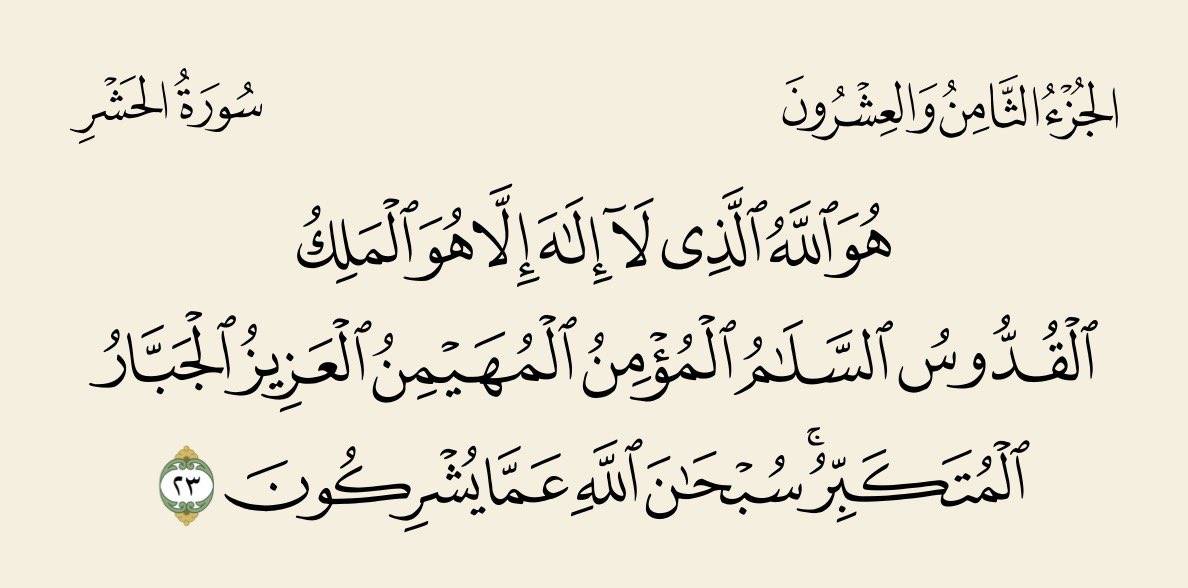 الجُزْءُ الثَّامِنُ وَالعِشْرُونَ سُورَةُ الحَشْرِ
هُوَ ٱللَّهُ ٱلَّذِى لَآ إِلَـٰهَ إِلَّا هُوَ ٱلْمَلِكُ
ٱلْقُدُّوسُ ٱلسَّلَـٰمُ ٱلْمُؤْمِنُ ٱلْمُهَيْمِنُ ٱلْعَزِيزُ ٱلْجَبَّارُ
ٱلْمُتَكَبِّرُ ۚ سُبْحَـٰنَ ٱللَّهِ عَمَّا يُشْرِكُونَ ٢٣